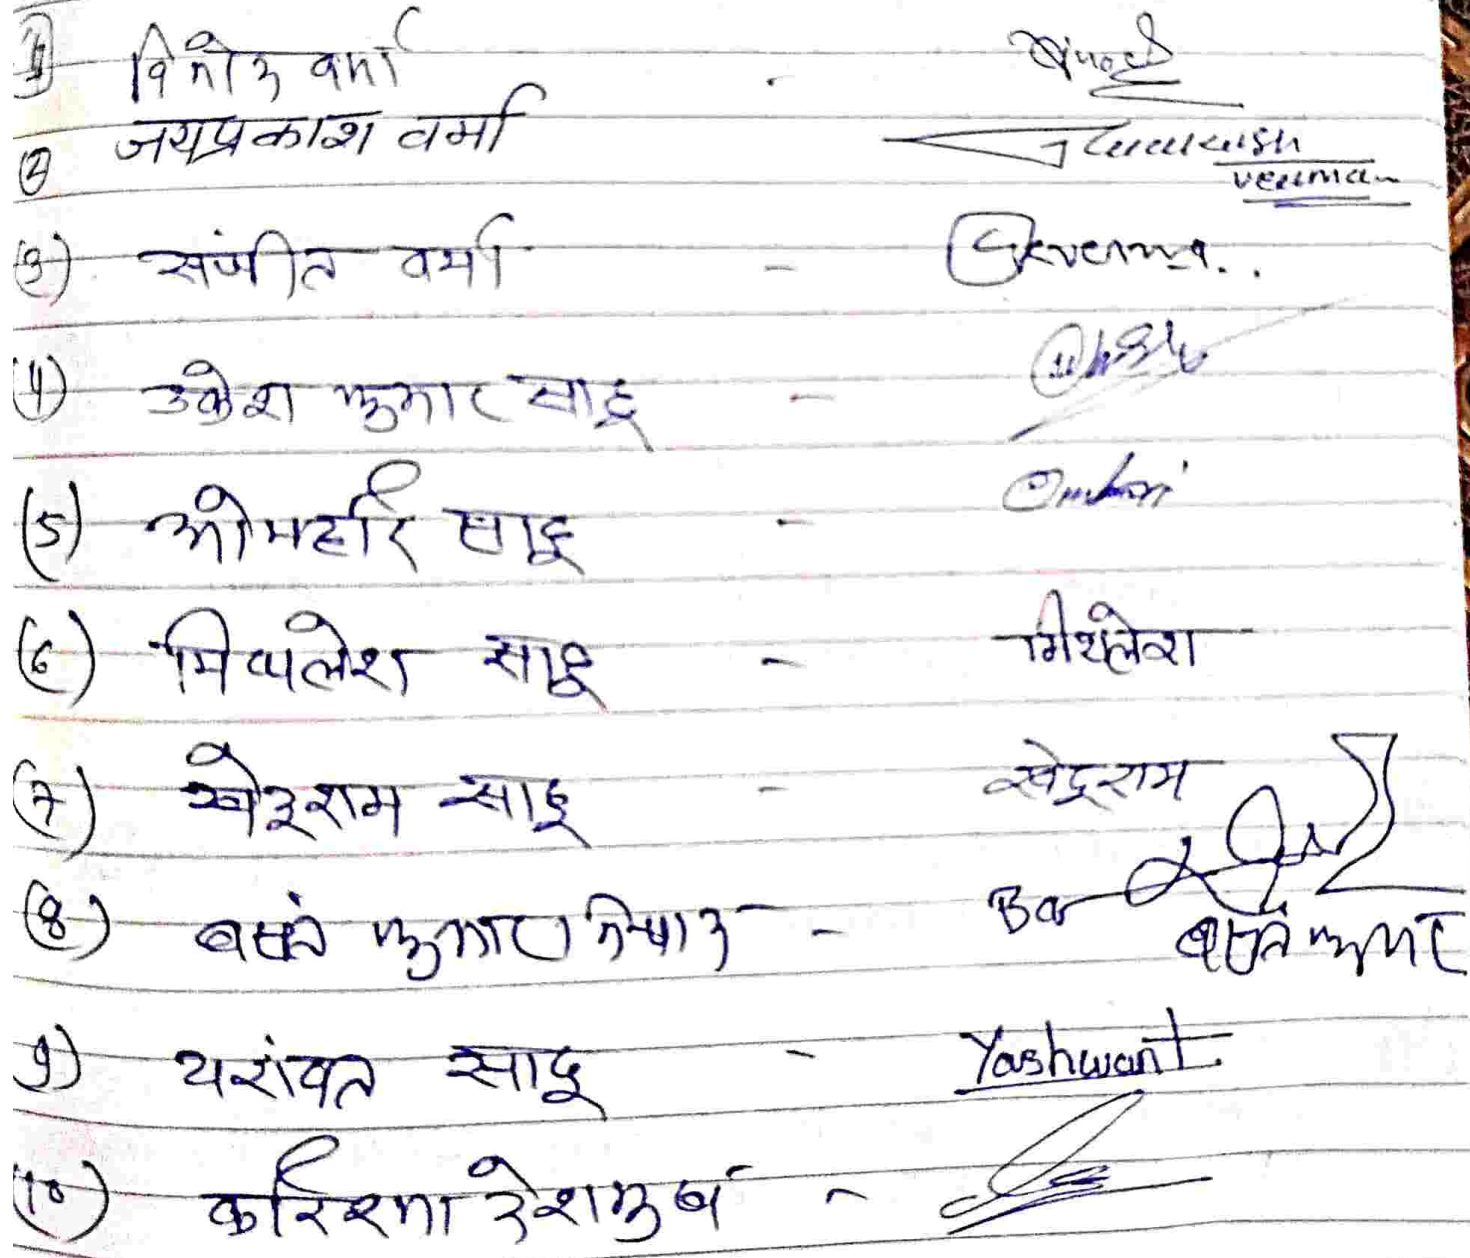 1) विनोद वर्मा - Binod
2) जयप्रकाश वर्मा verma
(3) संजीत वर्मा - Sverma..
(4) उकेश कुमार साहू -
(5) ओमहरि साहू - Omhari
(6) मिथलेश साहू - मिथलेश
(7) खेदुराम साहू - खेदुराम
(8) बसंत कुमार निषाद - बसंत कुमार
9) यशंवत साहू - Yashwant
(10) करिश्मा देशमुख -